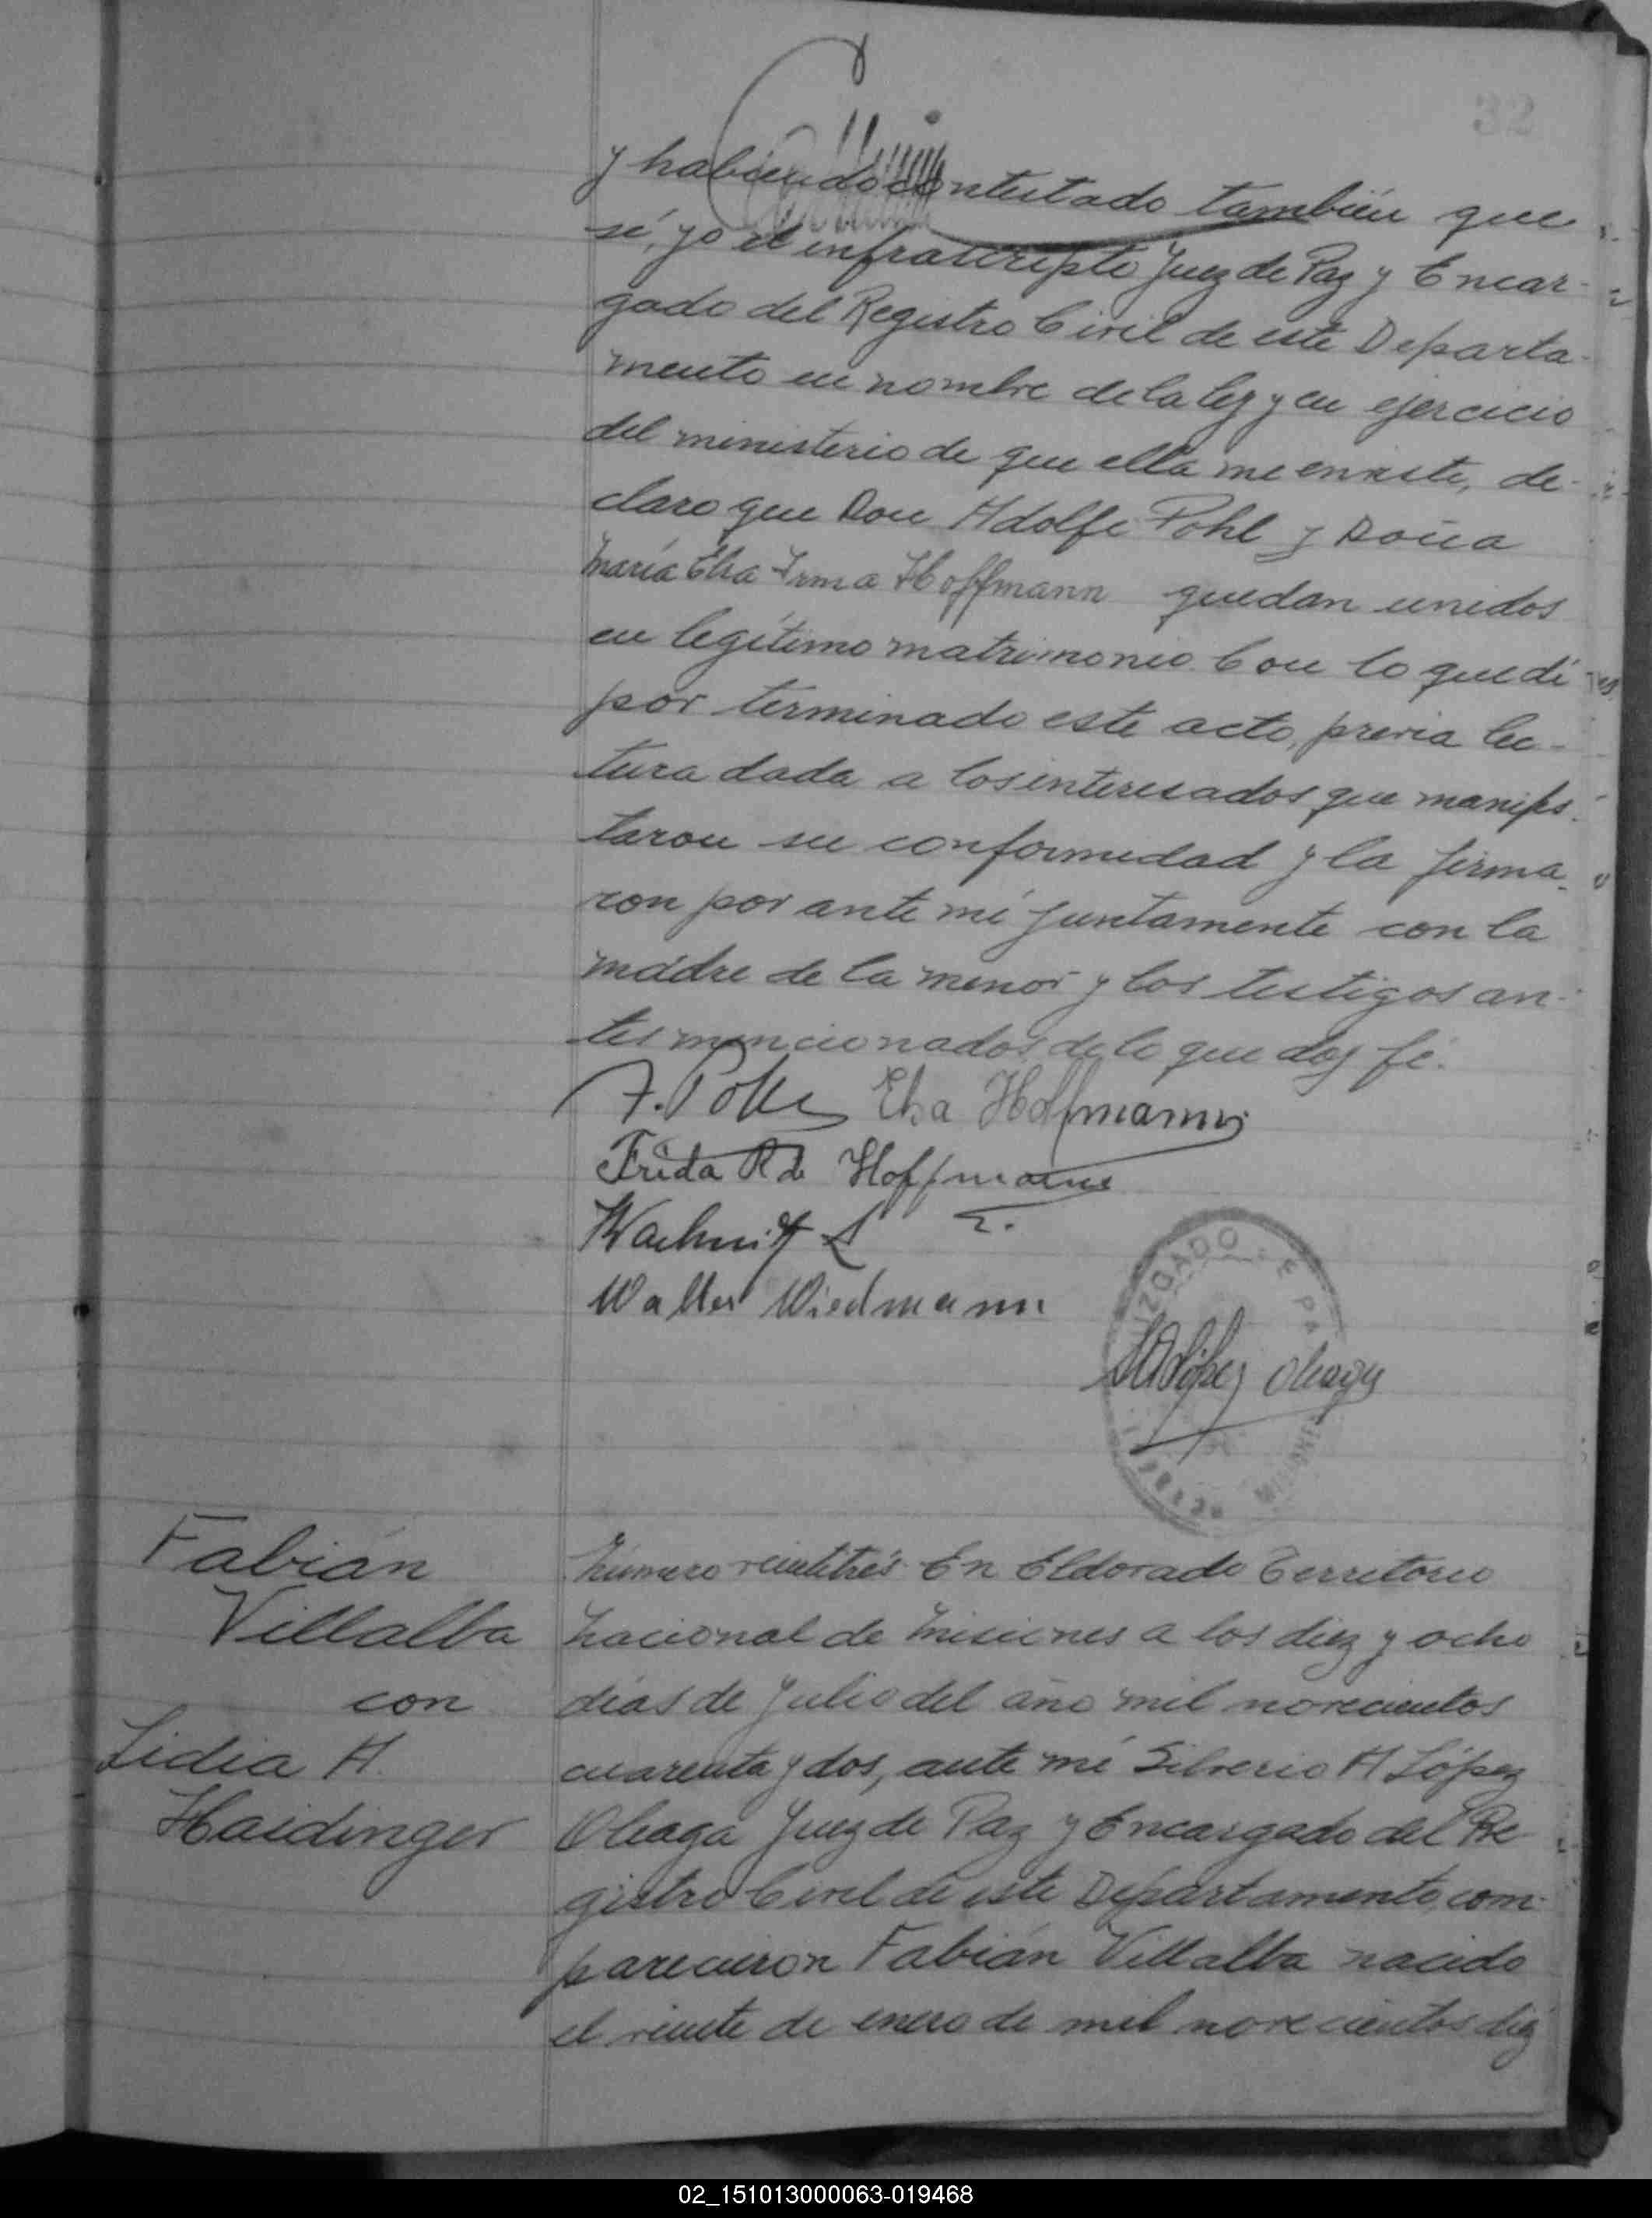 32
y habiendo contestado también que
sí, yo el infrascripto Juez de Paz y Encar-
gado del Registro Civil de este Departa-
mento en nombre de la ley y en ejercicio
del ministerio de que ella me enviste, de-
claro que Don Adolfo Pohl y Doña
María Elsa Irma Hoffmann quedan unidos
en legítimo matrimonio. Con lo que dí
por terminado este acto, previa lec-
tura dada a los interesados que manifes-
taron su conformidad y la firma-
ron por ante mí juntamente con la
madre de la menor y los testigos an-
tes mencionados de lo que doy fé.
A. Pohl Elsa Hoffmann
Frida R de Hoffmann
Walter Wiedmann
JUZGADO DE PAZ
MISIONES
SALópez Oleaga
Fabián
Villalba
con
Lidia H.
Haidinger
Número veintitrés En Eldorado Territorio
Nacional de Misiones a los diez y ocho
días de Julio del año mil novecientos
cuarenta y dos, ante mí Silverio A López
Oleaga Juez de Paz y Encargado del Re-
gistro Civil de este Departamento, com-
parecieron Fabián Villalba nacido
el veinte de enero de mil novecientos diez
02_151013000063-019468